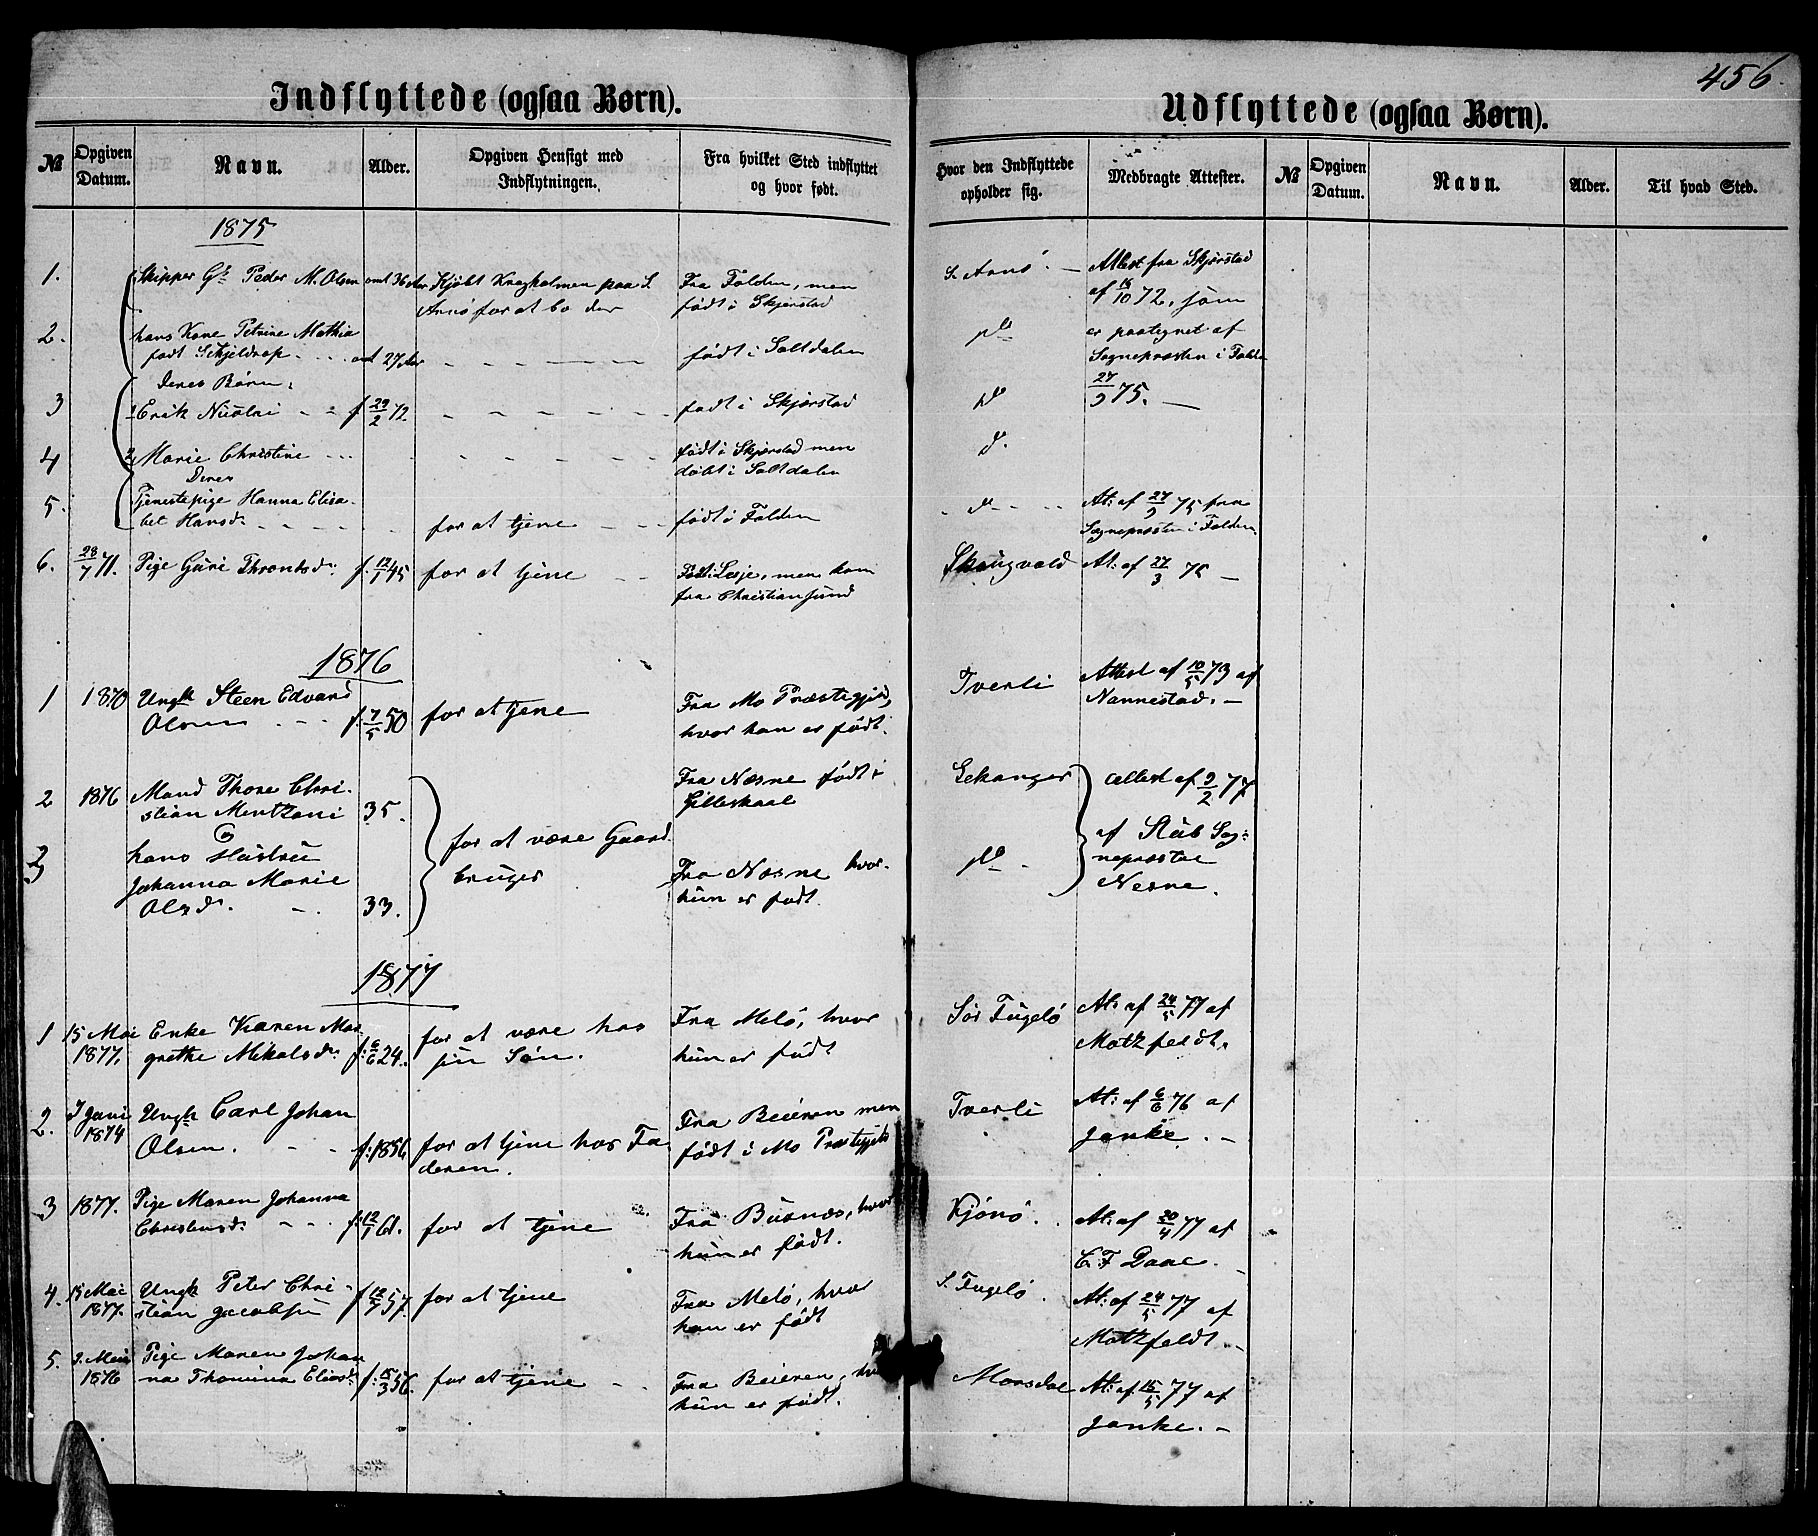 456.
Indflyttede (ogsaa Børn).
Udflyttede (ogsaa Børn).
№ Opgiven Datum. Navn. Alder. Opgiven Hensigt med Indflytningen. Fra hvilket Sted indflyttet og hvor født. Hvor den Indflyttede opholder sig. Medbragte Attester. № Opgiven Datum. Navn. Alder. Til hvad Sted.
1875
1. Skipper Peder M. Olsen omt 36 Aar Kjøbt Kragholmen paa S. Fra Folden, men S. Arnø. — Attest fra Skjerstad
Arnø for at bo der født i Skjerstad af 15/10 72, som
2. hans Kone Petrine Mathia er paategnet af
født Skjeldrop - - - omt 27 Aar født i Saltdalen Sognepræsten i Folden
Deres Børn: 27/9 75. —
3 1 Erik Nicolai - - f. 29/2 72. født i Skjerstad do
4 2 Marie Christine - - - født i Skjerstad men
døbt i Saltdalen
Deres
5. Tjenestepige Hanna Elisa- At: af 27/9 75 fra
bet Hansd: - - - for at tjene - - - født i Folden Sognepræsten i Folden
6. 28/7 71. Pige Guri Throntsdr. f. 12/1 45 for at tjene - - Født i Lesje, men kom Skaugvold At: af 27/3 75 —
fra Christiansund
1876
1 1870 Ungk Steen Edvard Fra Mo Præstegjeld, Tverli Attest af 10/5 73 af
Olsen - - - f. 7/5 50 for at tjene hvor han er født. Nannestad. —
2 1876 Mand Thore Chri- Fra Næsne født i Sekanger Attest af 9/2 77
stian Mentzoni 35. Gilleskaal
og for at være Gaard- af Stub Sog-
3 hans Hustru bruger Fra Næsne hvor- do — nepræst
Johanna Marie hun er født. Nesne.
Olsdr. - - 33.
1877
1 15 Mai Enke Karen Mar- for at være hos Fra Melö, hvor Sör Fugelö At: af 24/5 77 af
1877. grethe Mikalsdr f: 6/6 24. sin Sön. hun er født Motzfeldt.
2. Juni Ungk Carl Johan Fra Beieren men Tverli At: af 6/6 76 af
1874 Olsen. - - f: 1856 for at tjene hos Fa- født i Mo Præstegjeld Janke. —
deren.
3 1877. Pige Maren Johanna Fra Busnes, hvor Kjönö. At: af 20/4 77 af
Christensd: - - - f: 12/1 61. for at tjene hun er født. C. F. Daae. —
4. 15 Mai Ungk Peter Chri- Fra Melö, hvor S. Fugelö. At: af 24/5 77 af
1877. stian Jacobsen f. 18/7 57. for at tjene han er født Motzfeldt. —
5. Mai Pige Maren Johan Fra Beieren, hvor Morsdal At: af 15/5 77 af
1876 na Thomina Eliasd: f: 15/3 56. for at tjene - - hun er født. Janke. —